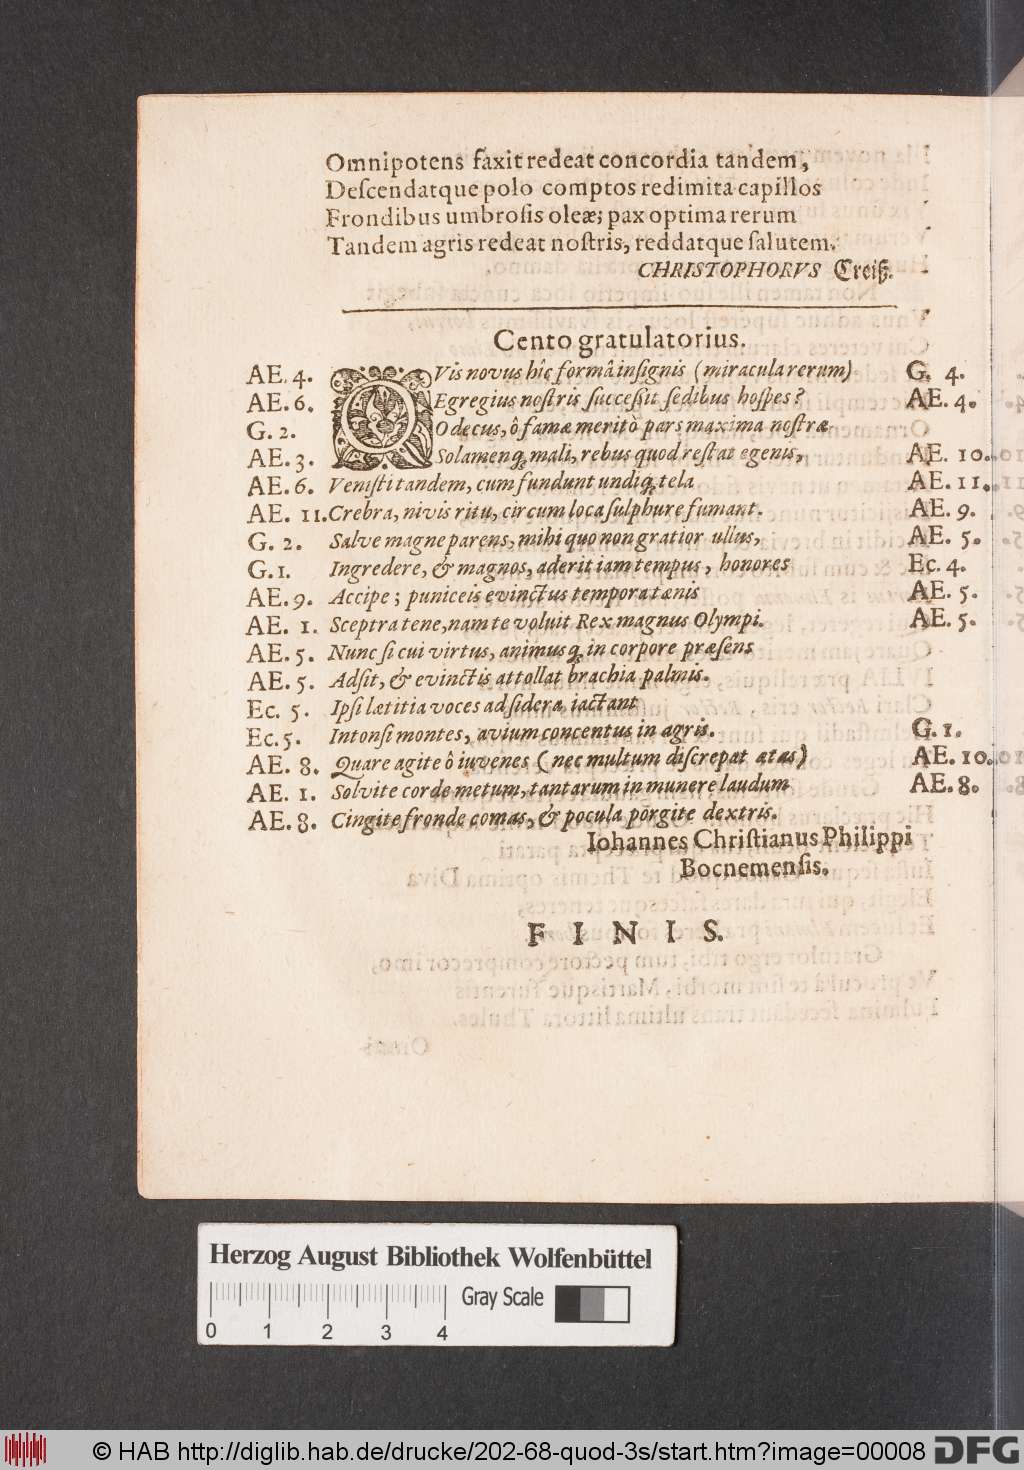 Omnipotens faxit redeat concordia tandem,
Deſcendatque polo comptos redimita capillos
Frondibus umbroſis oleæ; pax optima rerum
Tandem agris redeat noſtris, reddatque ſalutem.
CHRISTOPHORVS Creiß.
Cento gratulatorius.
AE. 4. QVis novus hîc formâ inſignis (miracula rerum) G. 4.
AE. 6. Egregius noſtris ſucceſſit ſedibus hoſpes? AE. 4.
G. 2. O decus, ô famæ meritò pars maxima noſtræ
AE. 3. Solamenq; mali, rebus quod reſtat egenis, AE. 10.
AE. 6. Veniſti tandem, cum fundunt undiq; tela AE. 11.
AE. 11. Crebra, nivis ritu, circum loca ſulphure fumant. AE. 9.
G. 2. Salve magne parens, mihi quo non gratior ullus, AE. 5.
G. 1. Ingredere, & magnos, aderit iam tempus, honores Ec. 4.
AE. 9. Accipe; puniceis evinctus tempora tænis AE. 5.
AE. 1. Sceptra tene, nam te voluit Rex magnus Olympi. AE. 5.
AE. 5. Nunc ſi cui virtus, animusq; in corpore præſens
AE. 5. Adſit, & evinctis attollat brachia palmis.
Ec. 5. Ipſi lætitia voces ad ſidera iactant
Ec. 5. Intonſi montes, avium concentus in agris. G. 1.
AE. 8. Quare agite ô iuvenes (nec multum diſcrepat ætas) AE. 10.
AE. 1. Solvite corde metum, tantarum in munere laudum AE. 8.
AE. 8. Cingite fronde comas, & pocula pōrgite dextris.
Iohannes Chriſtianus Philippi
Bocnemenſis.
F I N I S.
Herzog August Bibliothek Wolfenbüttel
Gray Scale
0 1 2 3 4
© HAB http://diglib.hab.de/drucke/202-68-quod-3s/start.htm?image=00008 DFG